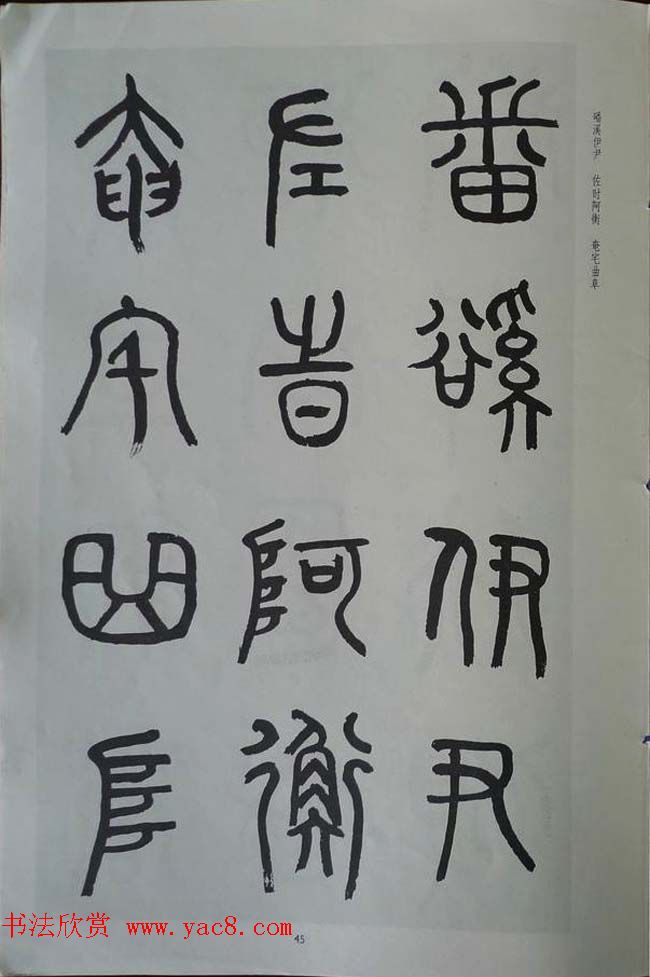 磻溪伊尹 佐时阿衡 奄宅曲阜
番谿伊尹
左時阿衡
奄宅曲阜
书法欣赏 www.yac8.com
45